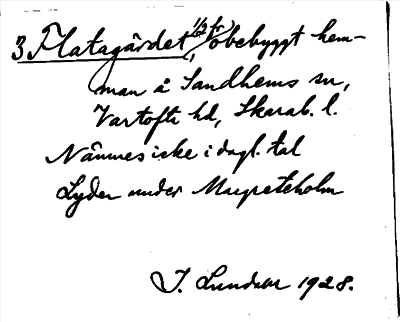 3 Flatagärdet, 1/2 fr, obebyggt hem-
man å Sandhems sn,
Vartofta hd, Skarab. l.
Nämnes icke i dagl. tal
Lyder under Margreteholm
J. Lundahl 1928.